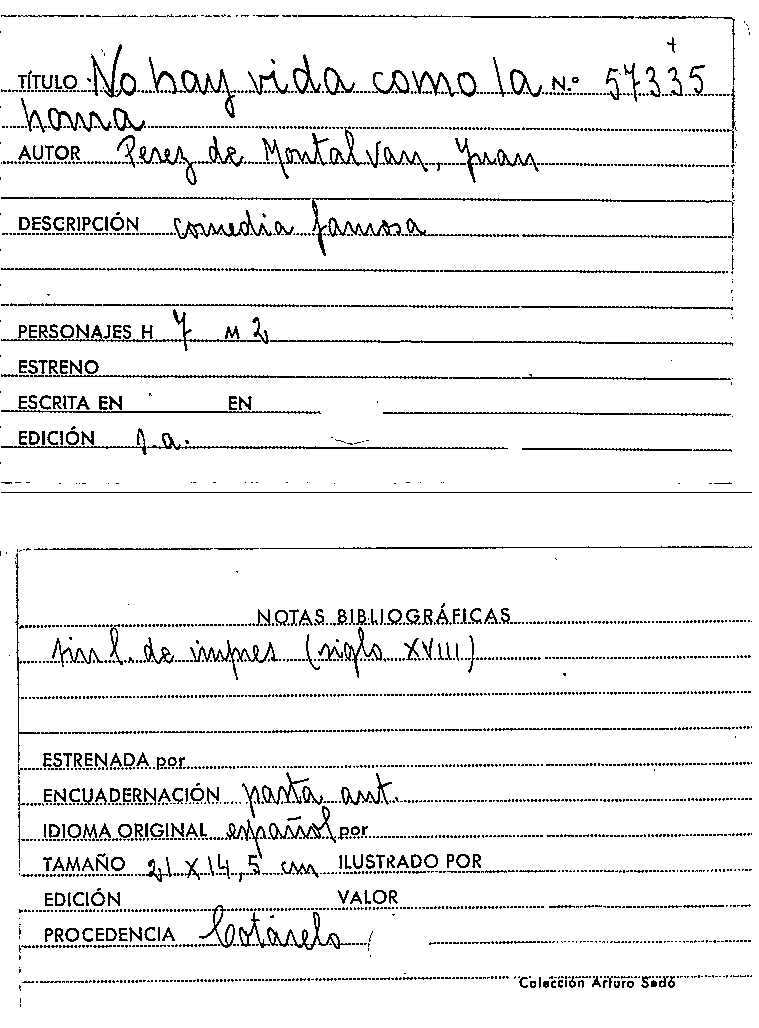 TÍTULO No hay vida como la N.º 57335
honra
AUTOR Perez de Montalvan, Juan
DESCRIPCIÓN comedia famosa
PERSONAJES H 7 M 2
ESTRENO
ESCRITA EN EN
EDICIÓN s.a.
NOTAS BIBLIOGRÁFICAS
sin l. de impres (siglo XVIII)
ESTRENADA por
ENCUADERNACIÓN pasta ant.
IDIOMA ORIGINAL español por
TAMAÑO 21 X 14,5 cm ILUSTRADO POR
EDICIÓN VALOR
PROCEDENCIA Cotarelo
Colección Arturo Sedó